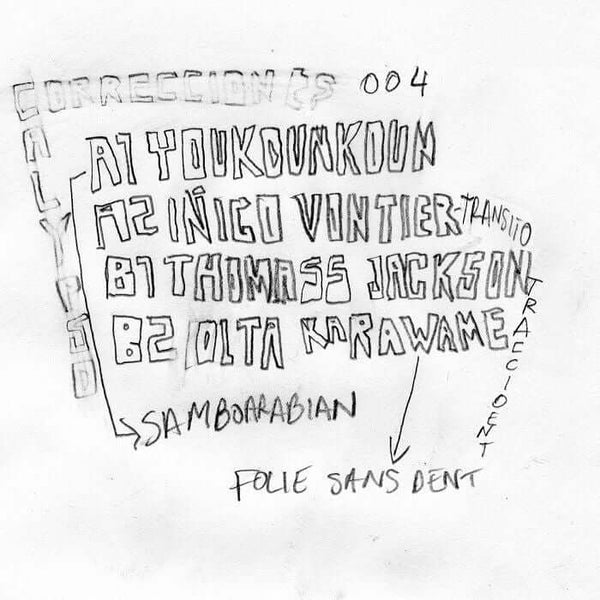 CORRECCIONES 004
CALYPSO
A1 YOUKOUNKOUN
A2 IÑIGO VONTIER-TRANSITO
B1 THOMASS JACKSON
TRAECCIDENT
B2 IOLTA KARAWAME
SAMBOARABIAN
FOLIE SANS DENT